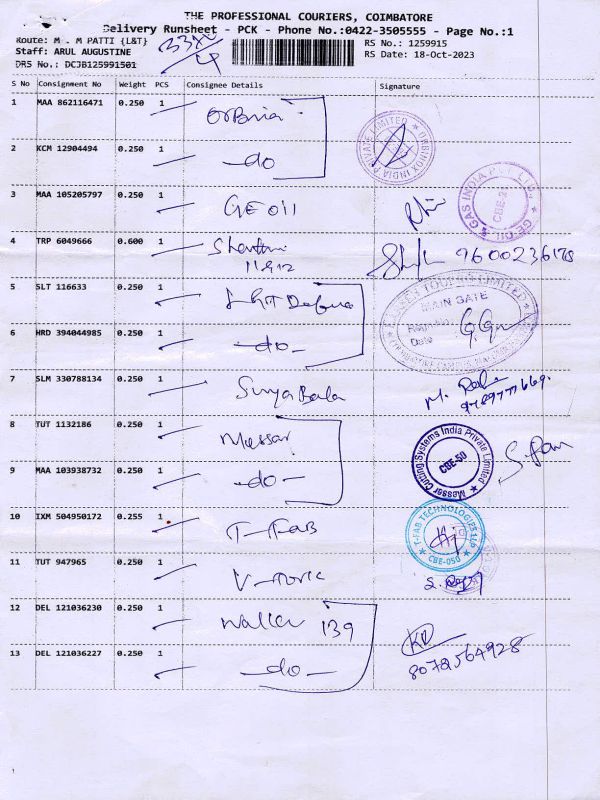 THE PROFESSIONAL COURIERS, COIMBATORE
Delivery Runsheet - PCK - Phone No.:0422-3505555 - Page No.:1
Route: M . M PATTI {L&T} RS No.: 1259915
Staff: ARUL AUGUSTINE RS Date: 18-Oct-2023
DRS No.: DCJB125991501
S No Consignment No Weight PCS Consignee Details Signature
1 MAA 862116471 0.250 1
2 KCM 12904494 0.250 1 -do-
ORBINOX INDIA PRIVATE LIMITED
3 MAA 105205797 0.250 1 GE Oil
GE OIL & GAS INDIA PVT. LTD. CBE-2
4 TRP 6049666 0.600 1 9600236178
5 SLT 116633 0.250 1 L&T Defence
MAIN GATE
Date
6 HRD 394044985 0.250 1 -do-
7 SLM 330788134 0.250 1 Surya Bala M.
8 TUT 1132186 0.250 1 Messar
Messer Cutting Systems India Private Limited CBE-50
9 MAA 103938732 0.250 1 -do-
10 IXM 504950172 0.255 1 T-FAB
T-FAB TECHNOLOGIES LLP CBE-050
11 TUT 947965 0.250 1
12 DEL 121036230 0.250 1 Waller 139
13 DEL 121036227 0.250 1 -do- 8072564928
1